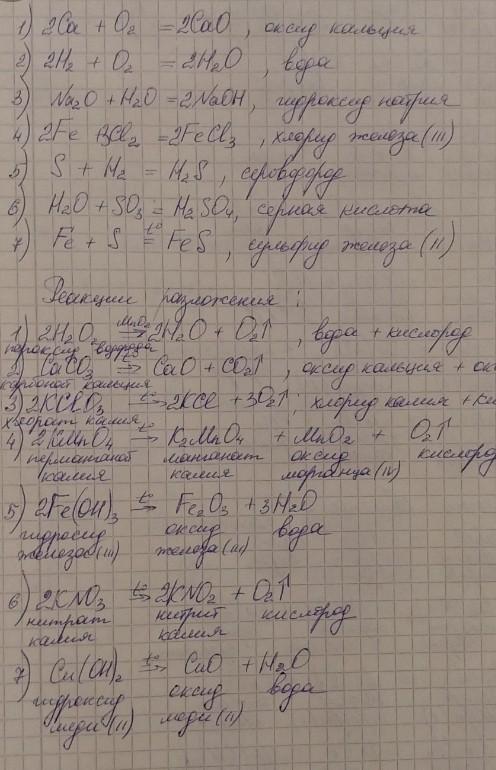 1) 2Ca + O₂ = 2CaO , оксид кальция
2) 2H₂ + O₂ = 2H₂O , вода
3) Na₂O + H₂O = 2NaOH, гидроксид натрия
4) 2Fe + 3Cl₂ = 2FeCl₃ , хлорид железа (III)
5) S + H₂ = H₂S , сероводород
6) H₂O + SO₃ = H₂SO₄, серная кислота
7) Fe + S t° = FeS , сульфид железа (II)
Реакции разложения :
1) 2H₂O₂ MnO₂ → 2H₂O + O₂↑ , вода + кислород
пероксид водорода
2) CaCO₃ t° → CaO + CO₂↑ , оксид кальция + ок
карбонат кальция
3) 2KClO₃ t° → 2KCl + 3O₂↑ ; хлорид калия + ки
хлорат калия
4) 2KMnO₄ t° → K₂MnO₄ + MnO₂ + O₂↑
перманганат манганат оксид кислород
калия калия марганца (IV)
5) 2Fe(OH)₃ t° → Fe₂O₃ + 3H₂O
гидроксид оксид вода
железа (III) железа (III)
6) 2KNO₃ t° → 2KNO₂ + O₂↑
нитрат нитрит кислород
калия калия
7) Cu(OH)₂ t° → CuO + H₂O
гидроксид оксид вода
меди (II) меди (II)